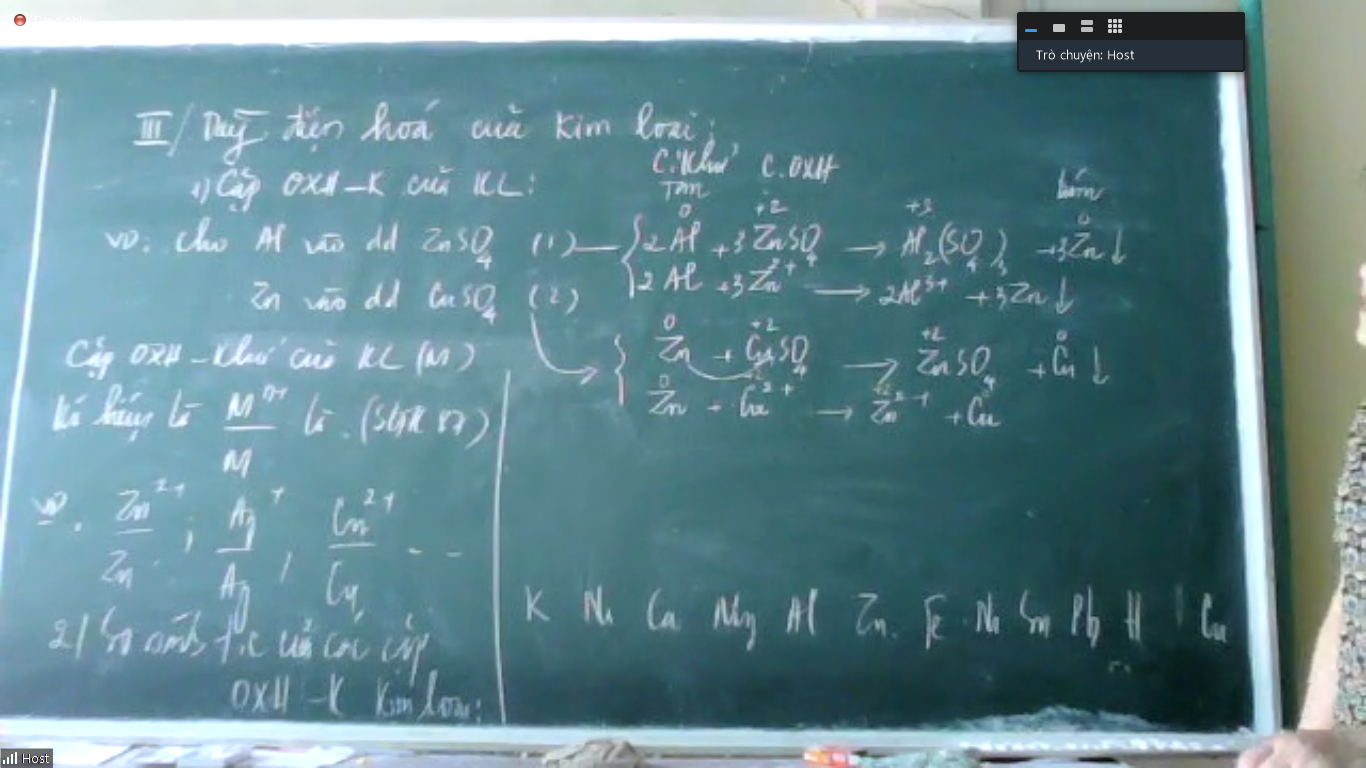 Trò chuyện: Host
III/ Dãy điện hoá của kim loại:
1) Cặp OXH-K của KL:
C.Khử C.OXH
Tan bám
VD: Cho Al vào dd ZnSO4 (1)
0 +2 +3 0
2Al + 3ZnSO4 → Al2(SO4)3 + 3Zn↓
2Al + 3Zn2+ → 2Al3+ + 3Zn↓
Zn vào dd CuSO4 (2)
0 +2 +2 0
Zn + CuSO4 → ZnSO4 + Cu↓
0 +2 +2 0
Zn + Cu2+ → Zn2+ + Cu
Cặp OXH-Khử của KL (M)
Kí hiệu là Mn+/M là (SGK 87)
VD. Zn2+/Zn ; Ag+/Ag ; Cu2+/Cu - -
2/ So sánh t/c của các cặp
OXH-K kim loại:
K Na Ca Mg Al Zn Fe Ni Sn Pb H Cu
Host